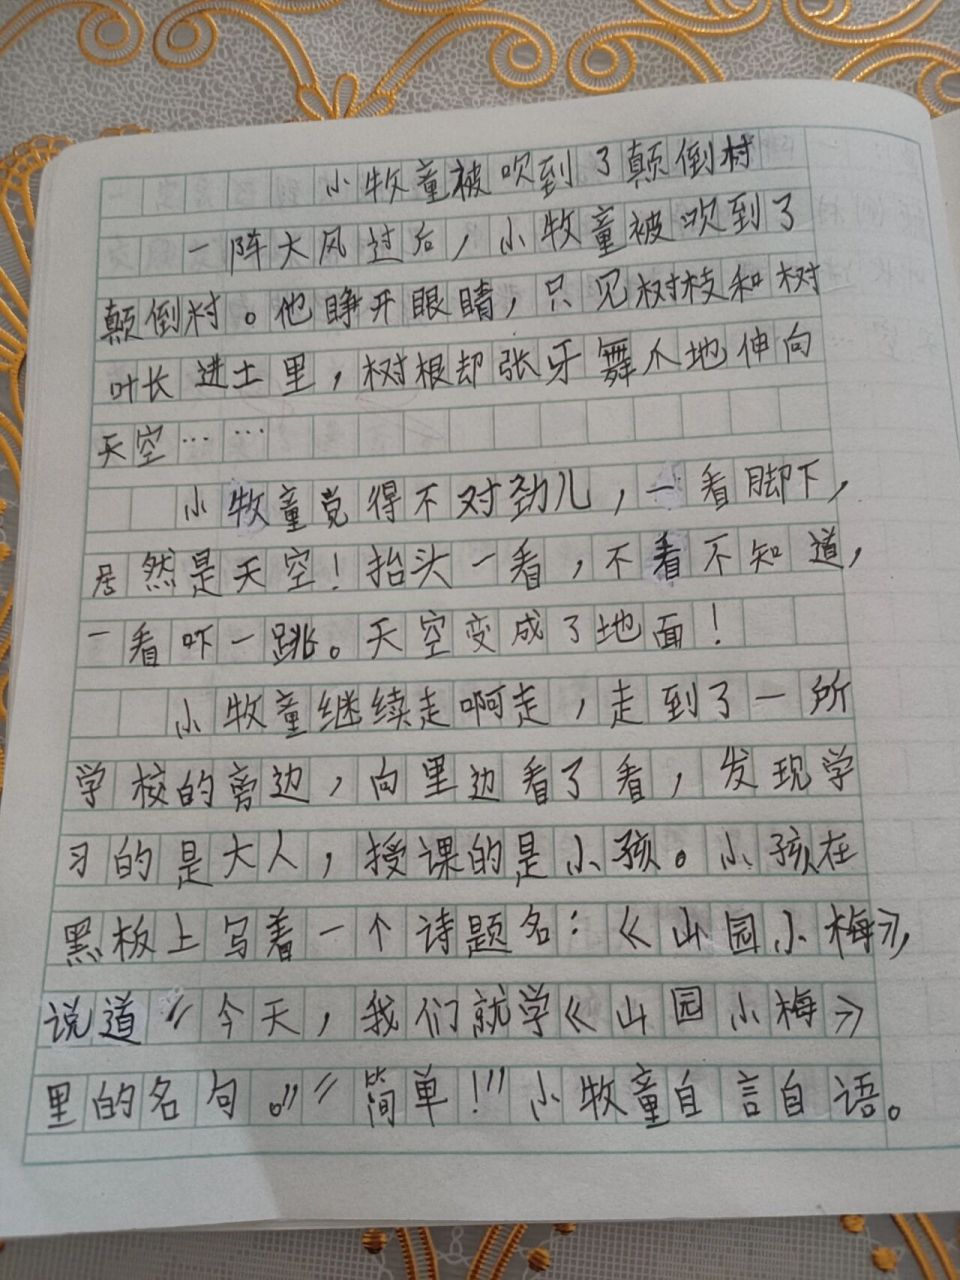 小牧童被吹到了颠倒村
一阵大风过后，小牧童被吹到了
颠倒村。他睁开眼睛，只见树枝和树
叶长进土里，树根却张牙舞爪地伸向
天空……
小牧童觉得不对劲儿，一看脚下，
居然是天空！抬头一看，不看不知道，
一看吓一跳。天空变成了地面！
小牧童继续走啊走，走到了一所
学校的旁边，向里边看了看，发现学
习的是大人，授课的是小孩。小孩在
黑板上写着一个诗题名：《山园小梅》，
说道“今天，我们就学《山园小梅》
里的名句。”“简单！”小牧童自言自语。